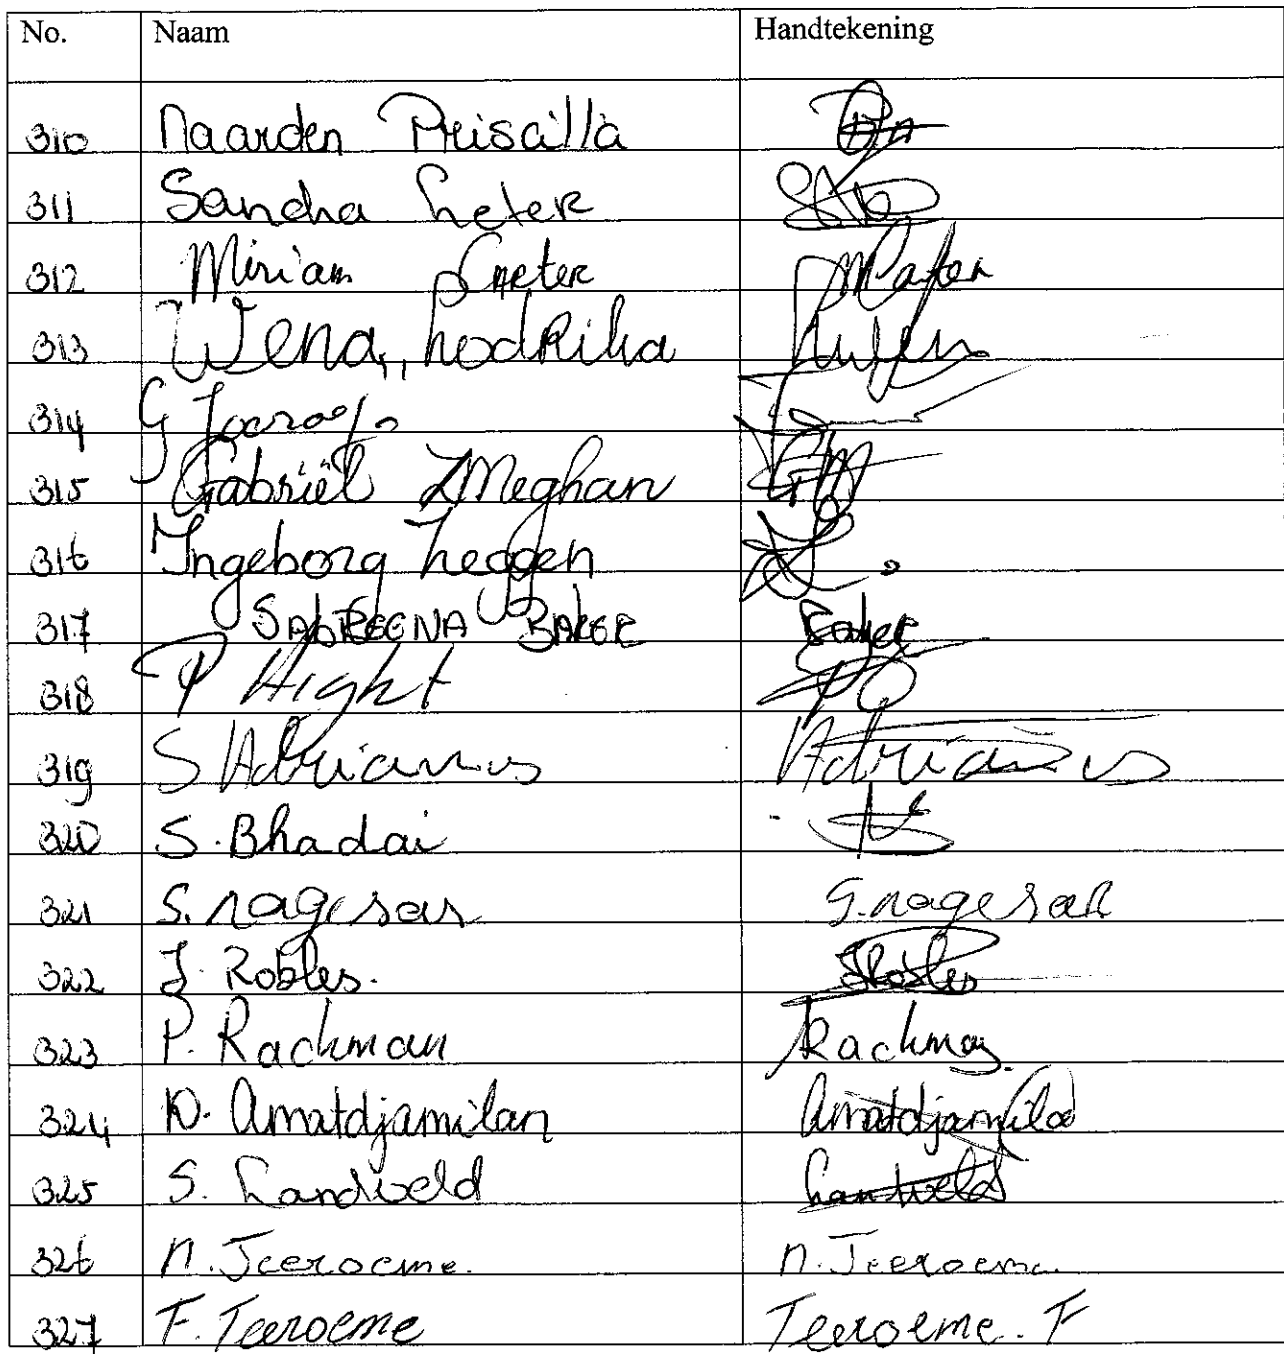 No. Naam Handtekening
310 Naarden Priscilla
311 Sandra Leter
312 Miriam
313 Wena,
314 G
315 Gabriël Meghan
316 Ingeborg Leggen
317 SABREGNA BAKER Baker
318 P Hight
319 S Adrianus Adrianus
320 S. Bhadai
321 S. nagesar S. nagesar
322 J. Robles. JRobles
323 P. Rachman Rachman
324 D. Amatdjamilan
325 S. Landveld Landveld
326 N. Jeeroeme. N. Jeeroeme.
327 F. Teeroeme Teeroeme. F